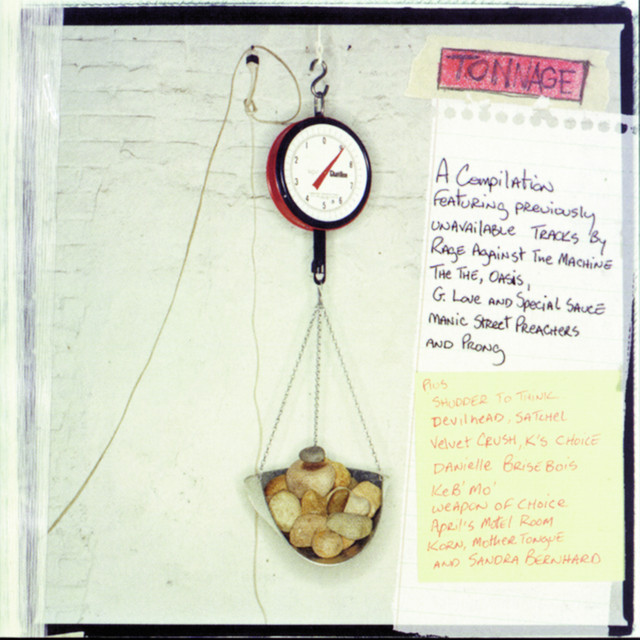 TONNAGE
A Compilation
Featuring previously
UNAVAILABLE TRACKS By
RAGE AGAINST THE MACHINE
THE THE, OASIS,
G. LOVE AND SPECIAL SAUCE
MANIC STREET PREACHERS
AND PRONG
PLUS
SHUDDER TO THINK
DEVILHEAD, SATCHEL
VELVET CRUSH, K'S CHOICE
DANIELLE BRISEBOIS
KEB' MO'
WEAPON OF CHOICE
APRIL'S MOTEL ROOM
KORN, MOTHER TONGUE
AND SANDRA BERNHARD
0
1
2
3
5
6